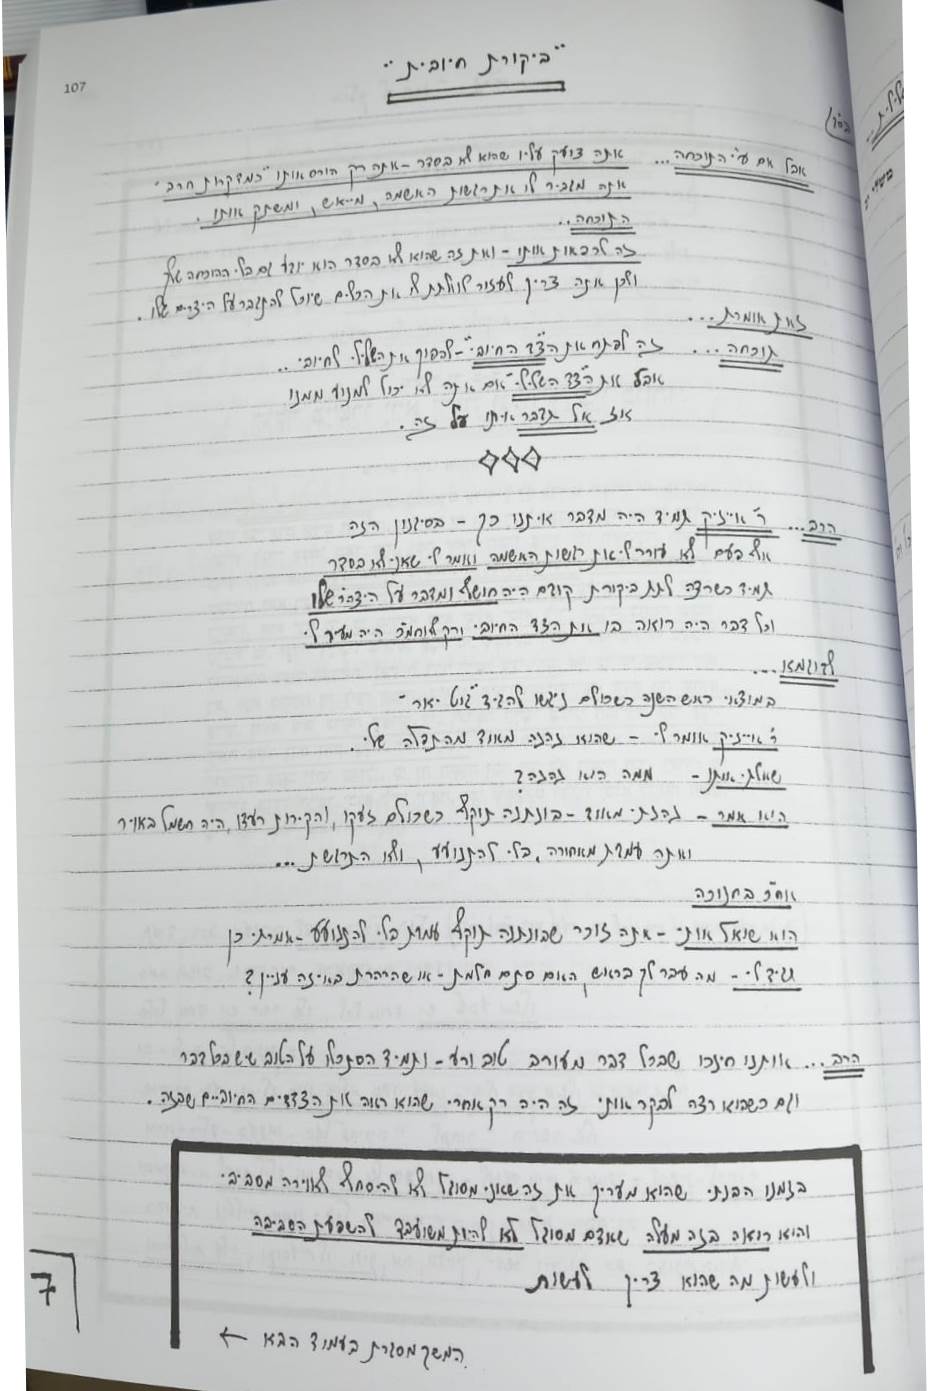 107
"ביקורת חיובית"
אבל אם ע"י התוכחה... אתה צועק עליו שהוא לא בסדר - אתה רק הורס אותו "כמדקרות חרב"
אתה מגביר לו את רגשות האשמה, מייאש, ומשתק אותו.
התוכחה..
זה לרפאות אותו - ואת זה שהוא לא בסדר הוא יודע גם בלי ההוכחה שלך
ולכן אתה צריך לעזור לו ולתת לו את הכלים שיוכל להתגבר על היצרים שלו.
זאת אומרת...
תוכחה... זה לפתח את ה"צד החיובי" - להפוך את השלילי לחיובי..
אבל את ה"צד השלילי" אם אתה לא יכול למנוע ממנו
אז אל תדבר איתו על זה.
הרב... ר' אייזיק תמיד היה מדבר איתנו כך - בסיגנון הזה
אף פעם לא עורר לי את רגשות האשמה ואמר לי שאני לא בסדר
תמיד כשרצה לתת ביקורת קודם היה חושף ומדבר על היצה"ר שלו
וכל דבר היה רואה בו את הצד החיובי ורק לאחמ"כ היה מעיר לי
לדוגמא...
במוצאי ראש השנה כשכולם ניגשו להגיד "גוט יאר"
ר' אייזיק אומר לי - שהוא נהנה מאוד מהתפלה שלי.
שאלתי אותו - ממה הוא נהנה?
הוא אמר - נהנתי מאוד - בונתנה תוקף כשכולם זעקו, והקירות רעדו, היה חשמל באויר
ואתה עמדת מאחורה, בלי להתנועע, ולא התרגשת...
אח"כ בחנוכה
הוא שואל אותי - אתה זוכר שבונתנה תוקף עמדת בלי להתנועע - אמרתי כן
תגיד לי - מה עבר לך בראש, האם סתם חלמת - או שהרהרת באיזה עניין?
הרב... אותנו חינכו שבכל דבר מעורב טוב ורע - ותמיד הסתכלו על הטוב שיש בכל דבר
וגם כשהוא רצה לבקר אותי זה היה רק אחרי שהוא ראה את הצדדים החיוביים שבזה.
בזמנו הבנתי שהוא מעריך את זה שאני מסוגל לא להיסחף לאוירה מסביבי
והוא רואה בזה מעלה שאדם מסוגל לא להיות משועבד להשפעת הסביבה
ולעשות מה שהוא צריך לעשות
המשך מסגרת בעמוד הבא ←
7